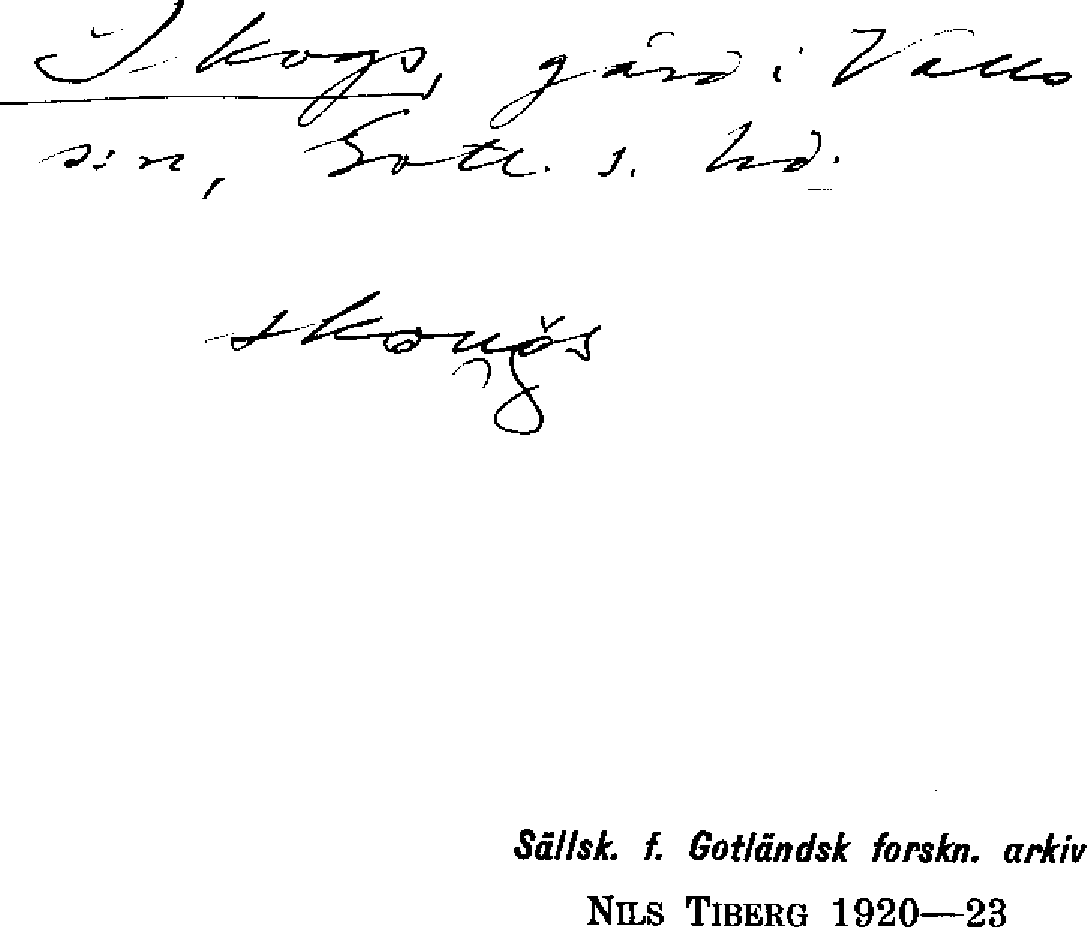 Skogs, gård i Valls
s:n, Gotl. s. hd.
Sällsk. f. Gotländsk forskn. arkiv
NILS TIBERG 1920—23